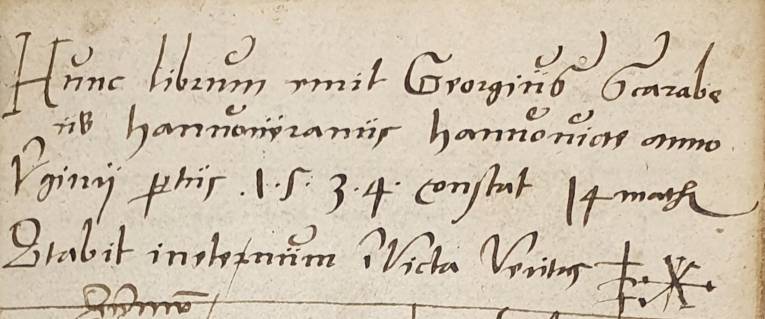 Hunc librum emit Georgius Scarabe
us hannoueranus hannouiae anno
Vginij ptus .1.5.3.4. constat 14 math
Stabit in eternum iVicta Veritas